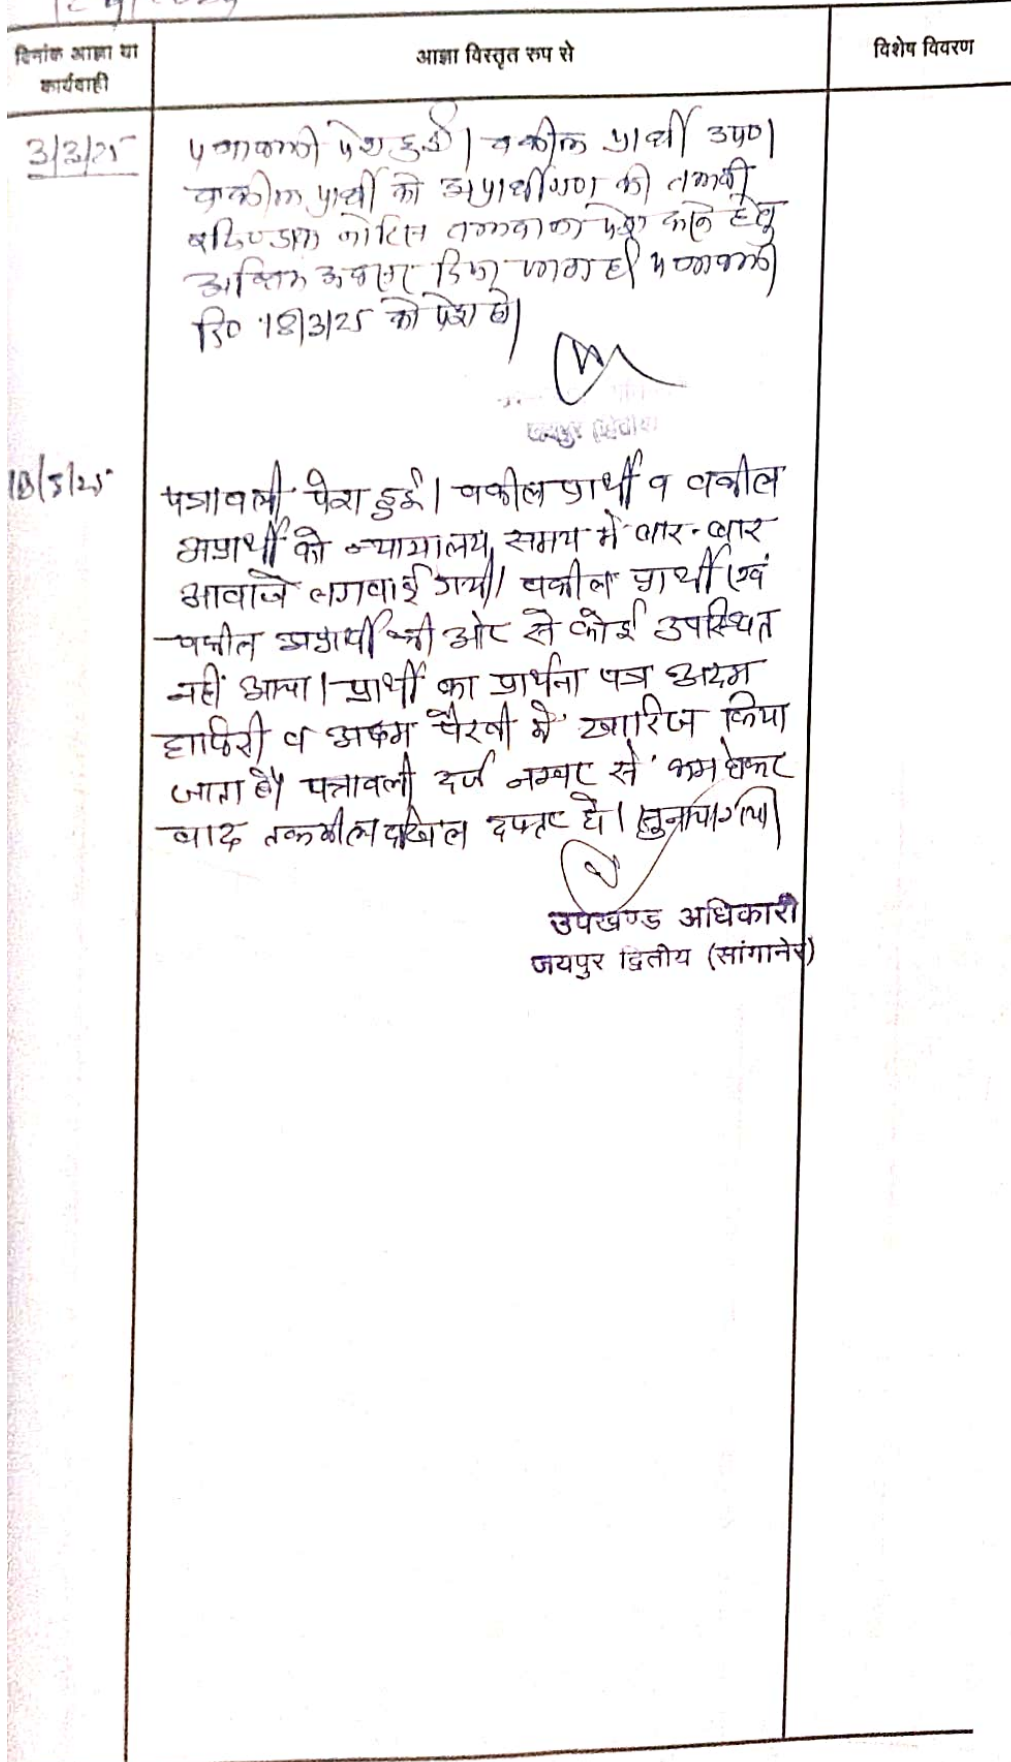 दिनांक आज्ञा या
कार्यवाही
आज्ञा विस्तृत रूप से
विशेष विवरण
3/3/25
पत्रावली पेश हुई। वकील प्रार्थी उप०।
वकील प्रार्थी को अप्रार्थीगण की तलबी
नोटिस तलवाना पेश करने हेतु
अन्तिम अवसर दिया जाता है। पत्रावली
दि० 18/3/25 को पेश हो।
18/3/25
पत्रावली पेश हुई। वकील प्रार्थी व वकील
अप्रार्थी को न्यायालय समय में बार-बार
आवाजे लगवाई गयी। वकील प्रार्थी एवं
वकील अप्रार्थी की ओर से कोई उपस्थित
नहीं आया। प्रार्थी का प्रार्थना पत्र अदम
हाजिरी व अदम पैरवी में खारिज किया
जाता है। पत्रावली दर्ज नम्बर से कम होकर
बाद तकमील दाखिल दफ्तर हो। सुनाया गया।
उपखण्ड अधिकारी
जयपुर द्वितीय (सांगानेर)